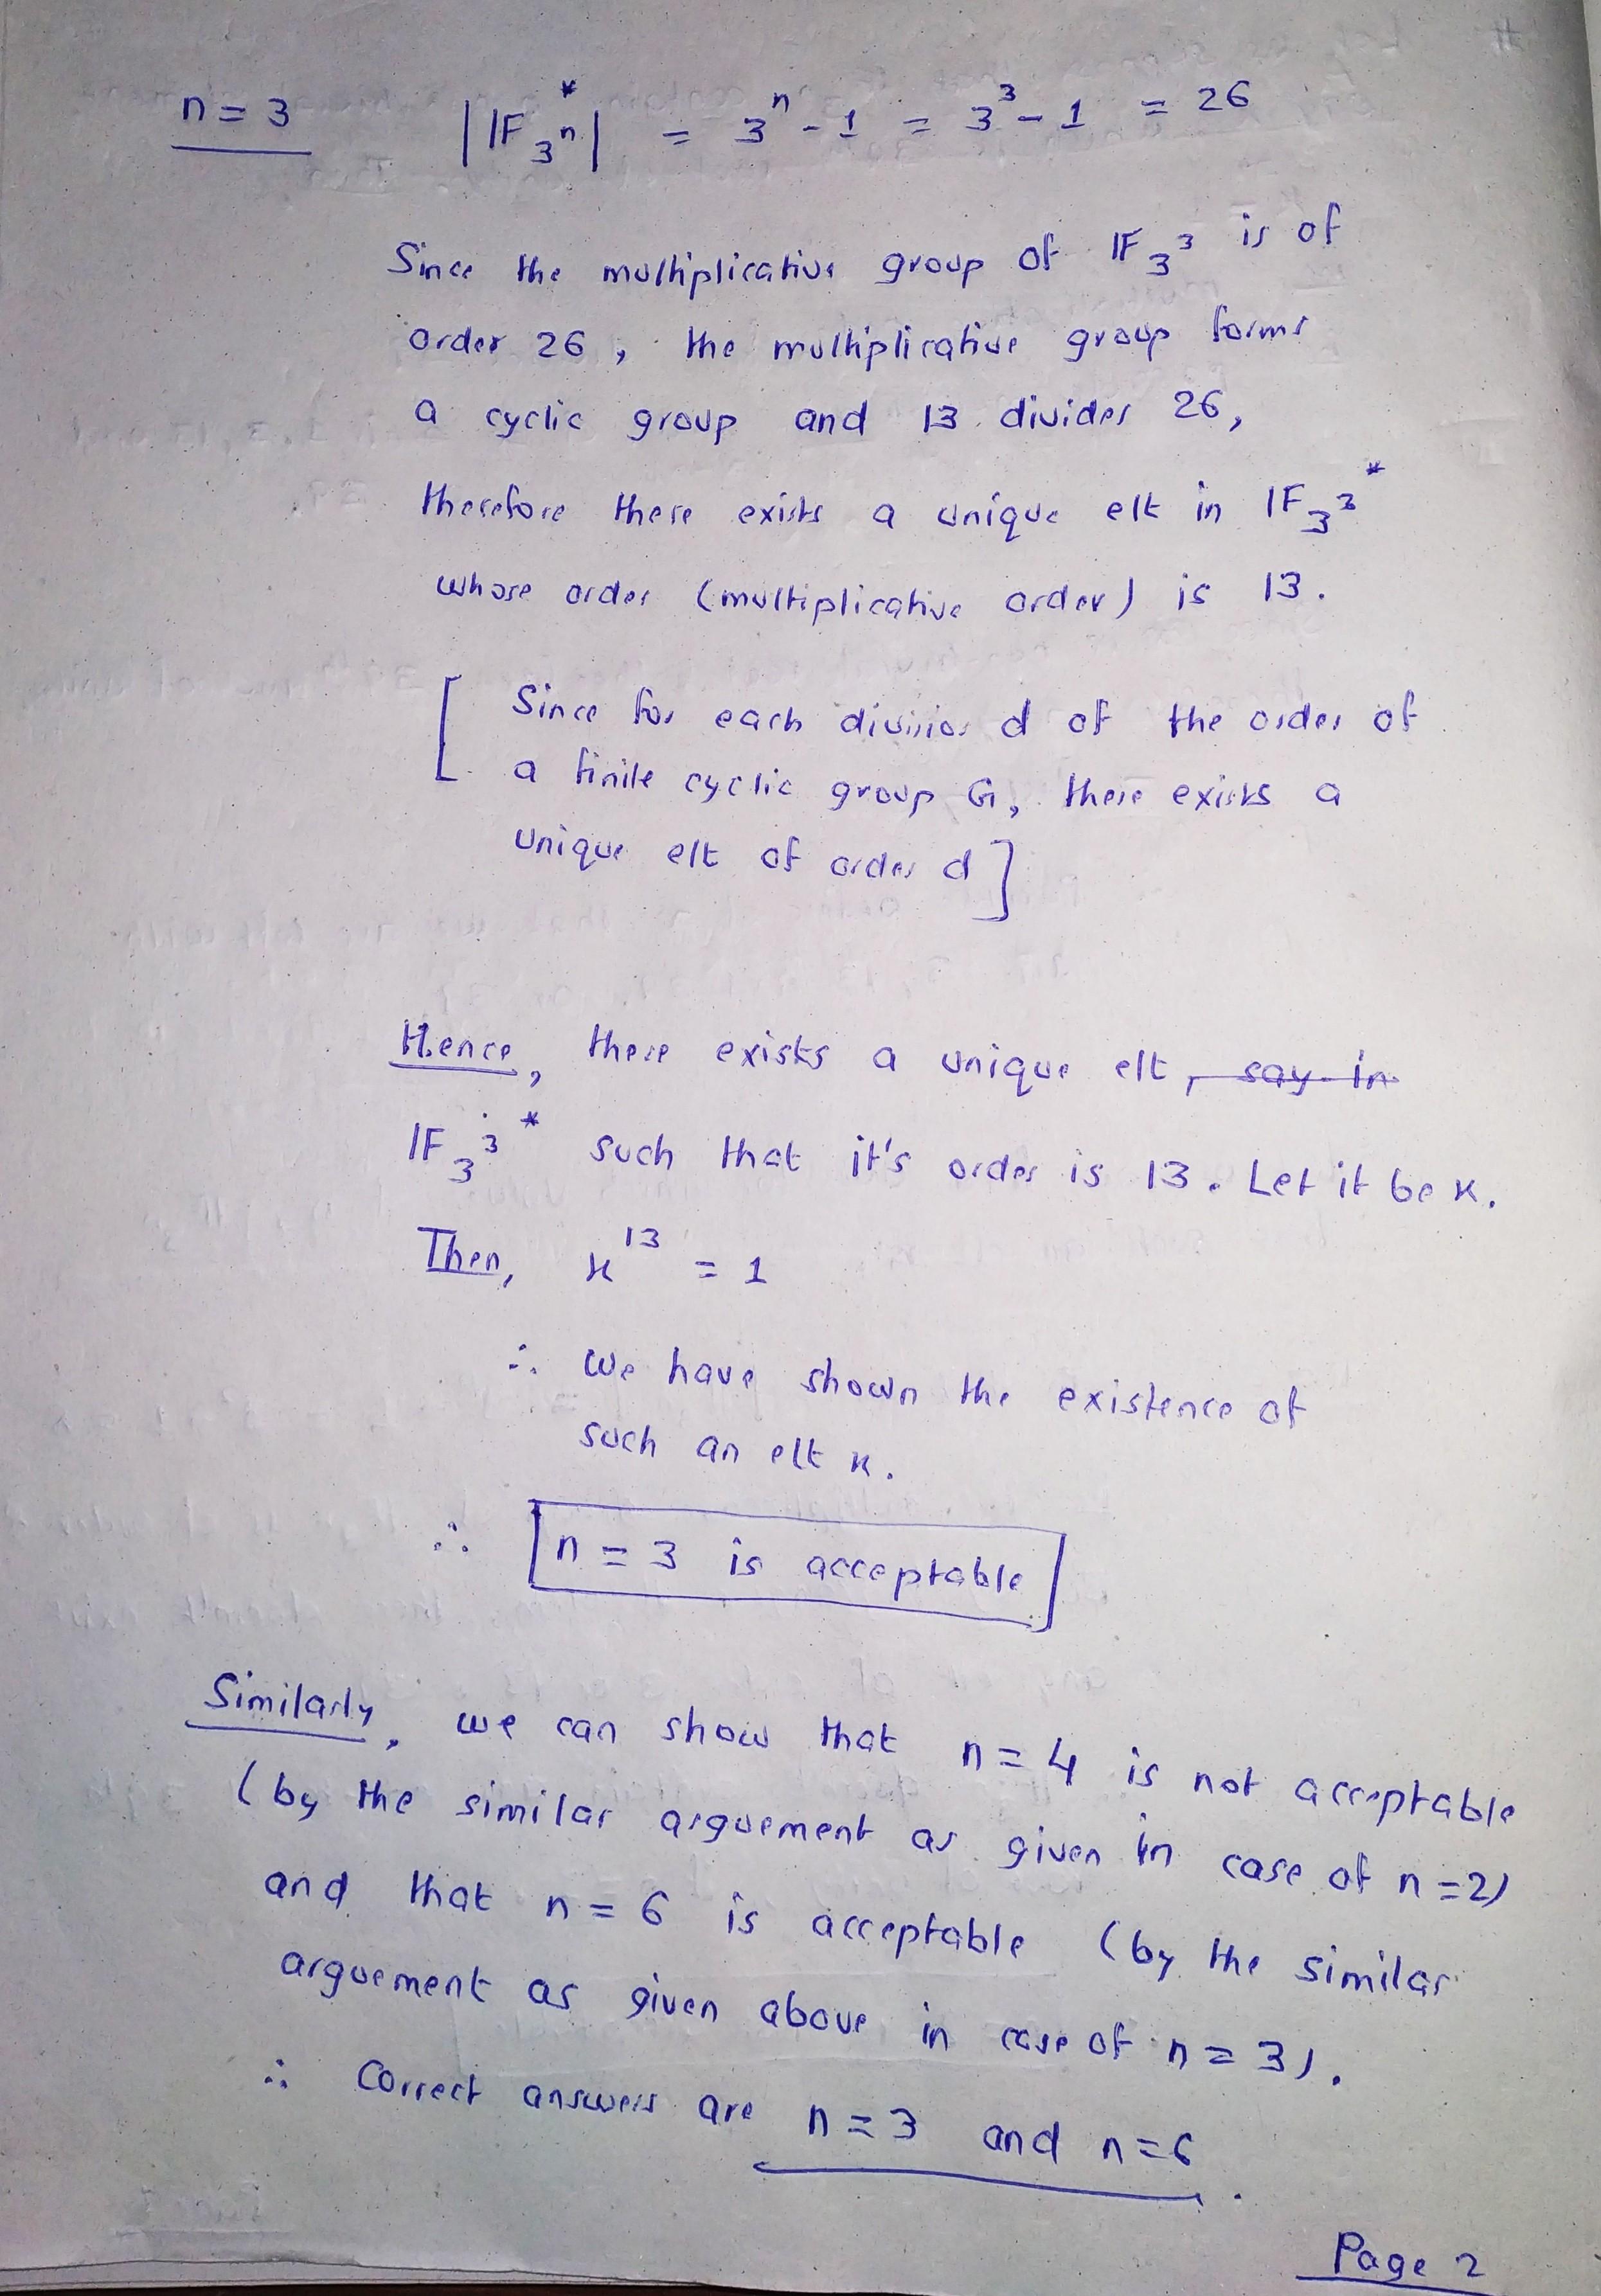 n = 3 |IF_{3^n}^*| = 3^n - 1 = 3^3 - 1 = 26
Since the multiplicative group of IF_{3^3} is of
order 26, the multiplicative group forms
a cyclic group and 13 divides 26,
therefore there exists a unique elt in IF_{3^3}^*
whose order (multiplicative order) is 13.
[ Since for each divisior d of the order of
a finite cyclic group G, there exists a
unique elt of order d ]
Hence, there exists a unique elt, say in
IF_{3^3}^* such that it's order is 13. Let it be x.
Then, x^{13} = 1
∴ We have shown the existence of
such an elt x.
∴ n = 3 is acceptable
Similarly, we can show that n = 4 is not acceptable
(by the similar arguement as given in case of n = 2)
and that n = 6 is acceptable (by the similar
arguement as given above in case of n = 3).
∴ Correct answers are n = 3 and n = 6.
Page 2